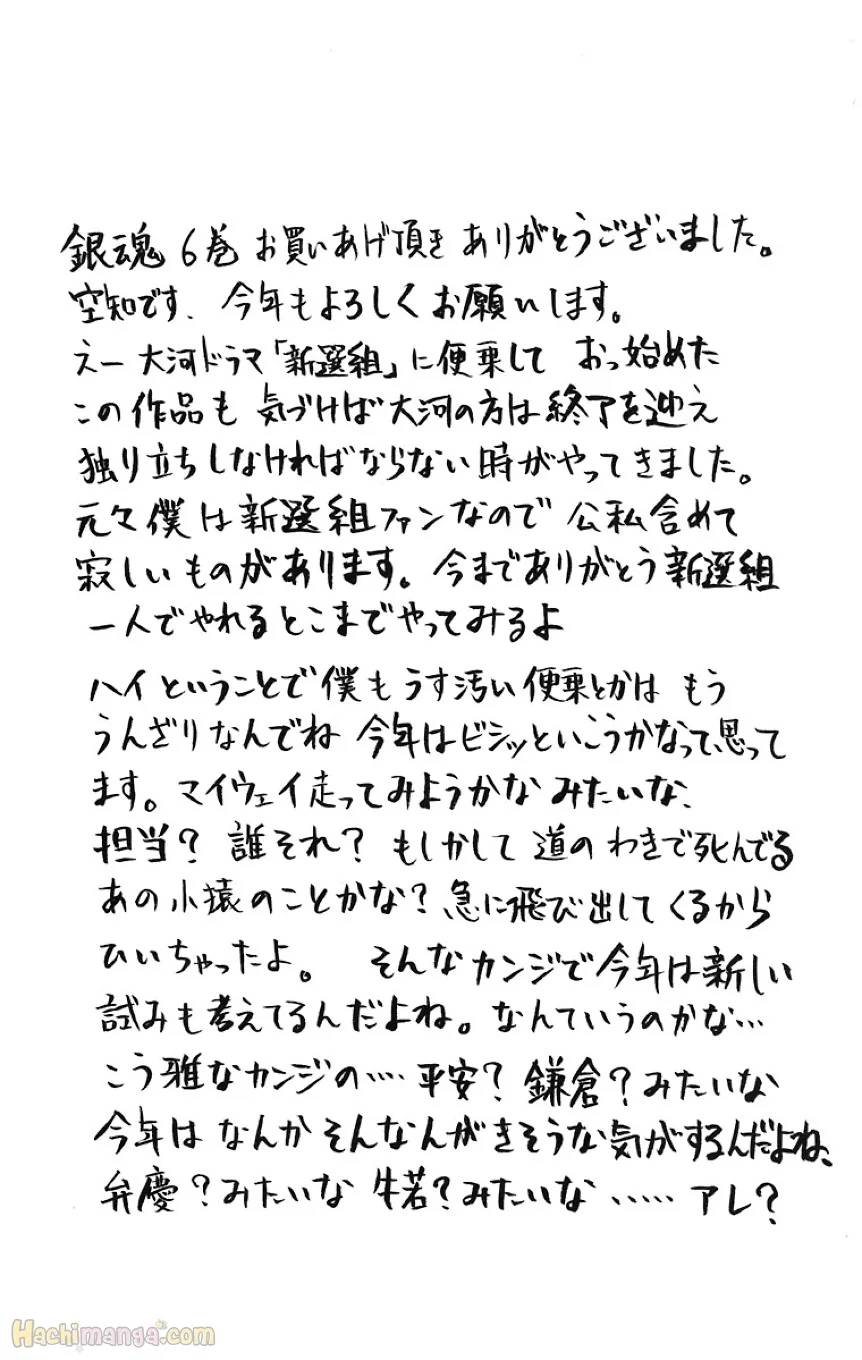 銀魂 6巻 お買いあげ頂き ありがとうございました。
空知です、今年もよろしくお願いします。
えー大河ドラマ「新選組」に便乗して おっ始めた
この作品も 気づけば大河の方は終了を迎え
独り立ちしなければならない時がやってきました。
元々僕は新選組ファンなので 公私含めて
寂しいものがあります。今までありがとう新選組
一人でやれるとこまでやってみるよ
ハイということで僕もうす汚い便乗とかは もう
うんざりなんでね 今年はビシッといこうかなって、思って
ます。マイウェイ走ってみようかな みたいな、
担当? 誰それ? もしかして 道のわきで死んでる
あの小猿のことかな? 急に飛び出してくるから
ひいちゃったよ。 そんなカンジで今年は新しい
試みも考えてるんだよね。なんていうのかな…
こう雅なカンジの…平安? 鎌倉? みたいな
今年は なんか そんなんがきそうな気がするんだよね、
弁慶? みたいな 牛若? みたいな …… アレ?
Hachimanga.com